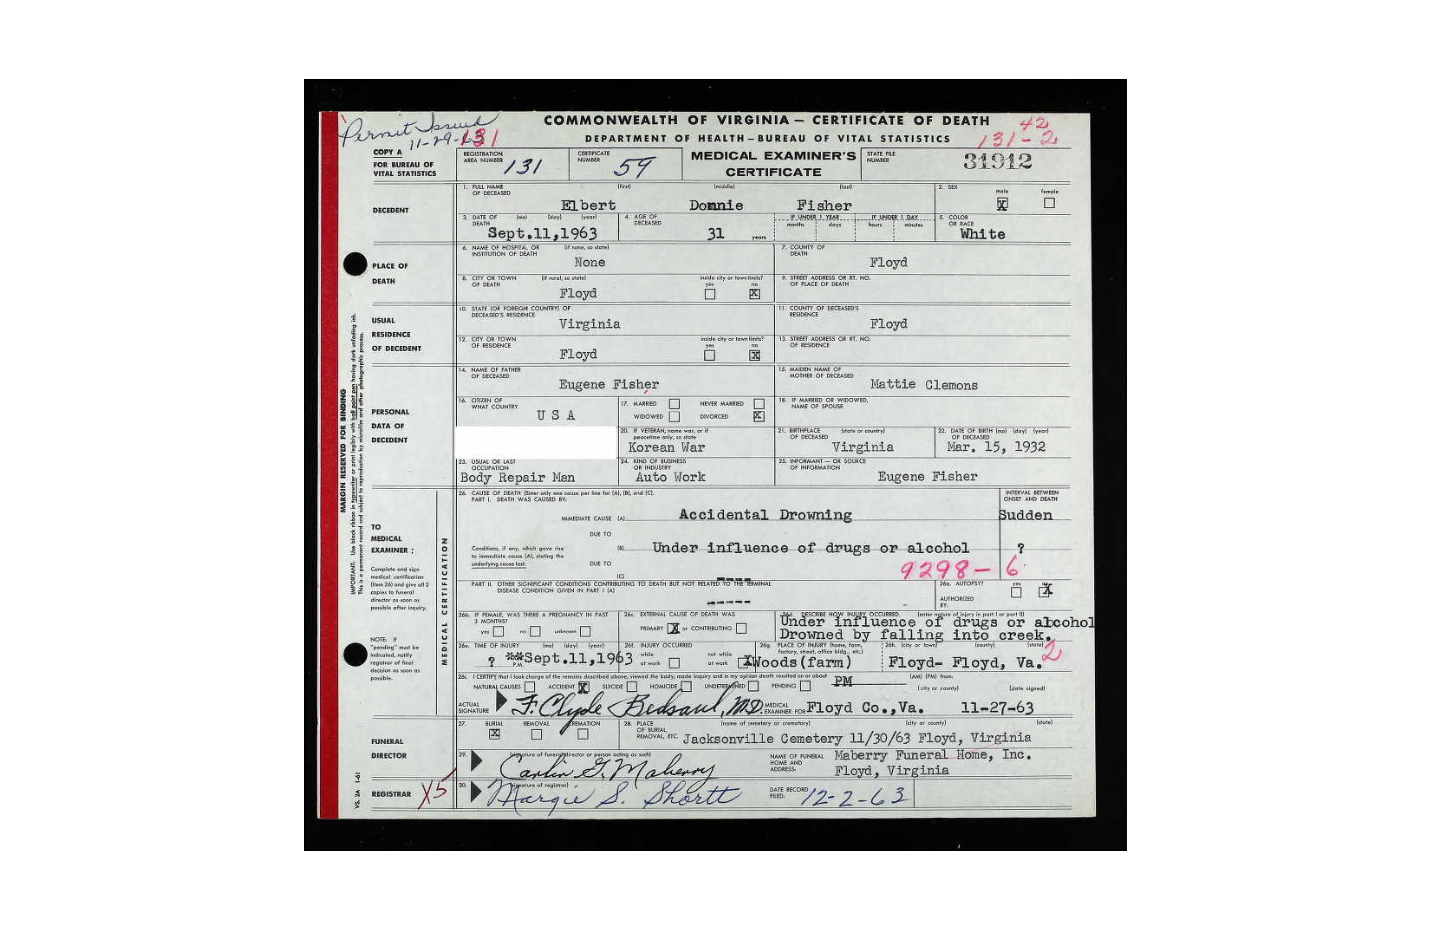 Permit Issued
11-29-63
131
COMMONWEALTH OF VIRGINIA — CERTIFICATE OF DEATH
42
DEPARTMENT OF HEALTH—BUREAU OF VITAL STATISTICS
131-2
COPY A
FOR BUREAU OF
VITAL STATISTICS
REGISTRATION
AREA NUMBER 131
CERTIFICATE
NUMBER 59
MEDICAL EXAMINER'S
CERTIFICATE
STATE FILE
NUMBER 31912
DECEDENT
1. FULL NAME
OF DECEASED (first) (middle) (last)
Elbert Donnie Fisher
2. SEX male female
X
3. DATE OF (mo) (day) (year)
DEATH
Sept.11,1963
4. AGE OF
DECEASED
31 years
IF UNDER 1 YEAR IF UNDER 1 DAY
months days hours minutes
5. COLOR
OR RACE
White
PLACE OF
DEATH
6. NAME OF HOSPITAL OR (if none, so state)
INSTITUTION OF DEATH
None
7. COUNTY OF
DEATH
Floyd
8. CITY OR TOWN (if rural, so state)
OF DEATH
Floyd
inside city or town limits?
yes no
X
9. STREET ADDRESS OR RT. NO.
OF PLACE OF DEATH
USUAL
RESIDENCE
OF DECEDENT
10. STATE (OR FOREIGN COUNTRY) OF
DECEASED'S RESIDENCE
Virginia
11. COUNTY OF DECEASED'S
RESIDENCE
Floyd
12. CITY OR TOWN
OF RESIDENCE
Floyd
inside city or town limits?
yes no
X
13. STREET ADDRESS OR RT. NO.
OF RESIDENCE
PERSONAL
DATA OF
DECEDENT
14. NAME OF FATHER
OF DECEASED
Eugene Fisher
15. MAIDEN NAME OF
MOTHER OF DECEASED
Mattie Clemons
16. CITIZEN OF
WHAT COUNTRY
U S A
17. MARRIED NEVER MARRIED
WIDOWED DIVORCED X
18. IF MARRIED OR WIDOWED,
NAME OF SPOUSE
20. IF VETERAN, name war, or if
peacetime only, so state
Korean War
21. BIRTHPLACE (state or country)
OF DECEASED
Virginia
22. DATE OF BIRTH (mo) (day) (year)
OF DECEASED
Mar. 15, 1932
23. USUAL OR LAST
OCCUPATION
Body Repair Man
24. KIND OF BUSINESS
OR INDUSTRY
Auto Work
25. INFORMANT — OR SOURCE
OF INFORMATION
Eugene Fisher
MARGIN RESERVED FOR BINDING
MEDICAL CERTIFICATION
TO
MEDICAL
EXAMINER :
Complete and sign
medical certification
(Item 26) and give all 3
copies to funeral
director as soon as
possible after inquiry.
NOTE: If
"pending" must be
indicated, notify
registrar of final
decision as soon as
possible.
26. CAUSE OF DEATH (Enter only one cause per line for (A), (B), and (C).
PART I. DEATH WAS CAUSED BY:
INTERVAL BETWEEN
ONSET AND DEATH
IMMEDIATE CAUSE (A) Accidental Drowning
Sudden
DUE TO
Conditions, if any, which gave rise
to immediate cause (A), stating the
underlying cause last.
(B) Under influence of drugs or alcohol
?
DUE TO
(C) ----
9298-6
PART II. OTHER SIGNIFICANT CONDITIONS CONTRIBUTING TO DEATH BUT NOT RELATED TO THE TERMINAL
DISEASE CONDITION GIVEN IN PART I (A)
-----
26a. AUTOPSY? yes no
X
AUTHORIZED
BY:
26b. IF FEMALE, WAS THERE A PREGNANCY IN PAST
3 MONTHS?
yes no unknown
26c. EXTERNAL CAUSE OF DEATH WAS
PRIMARY X or CONTRIBUTING
26d. DESCRIBE HOW INJURY OCCURRED. (enter nature of injury in part I or part II)
Under influence of drugs or alcohol
Drowned by falling into creek.
26e. TIME OF INJURY (mo) (day) (year)
? P.M. Sept.11,1963
26f. INJURY OCCURRED
while not while
at work at work X
26g. PLACE OF INJURY (home, farm,
factory, street, office bldg., etc.)
Woods(farm)
26h. (city or town) (county) (state)
Floyd- Floyd, Va.
2
I CERTIFY that I took charge of the remains described above, viewed the body, made inquiry and in my opinion death resulted on or about PM (AM) (PM) from:
NATURAL CAUSES ACCIDENT X SUICIDE HOMICIDE UNDETERMINED PENDING
(city or county) (date signed)
ACTUAL
SIGNATURE F. Clyde Bedsaul, M.D.
MEDICAL
EXAMINER FOR Floyd Co.,Va. 11-27-63
FUNERAL
DIRECTOR
27. BURIAL REMOVAL CREMATION
X
28. PLACE (name of cemetery or crematory) (city or county) (state)
OF BURIAL,
REMOVAL, ETC. Jacksonville Cemetery 11/30/63 Floyd, Virginia
29. (signature of funeral director or person acting as such)
Carlin G. Maberry
NAME OF FUNERAL
HOME AND
ADDRESS:
Maberry Funeral Home, Inc.
Floyd, Virginia
REGISTRAR
X5
30. (signature of registrar)
Margie S. Shortt
DATE RECORD
FILED: 12-2-63
VS. 2A 1-61